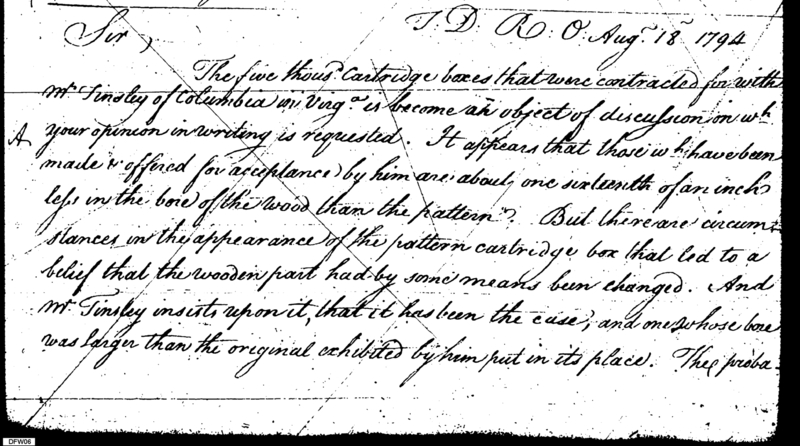 T. D. R. O. Augt. 18th 1794
Sir,
The five thousd. Cartridge boxes that were contracted for with
Mr. Tinsley of Columbia in Virga. is become an object of discussion on wh.
A your opinion in writing is requested. It appears that those wh. have been
made & offered for acceptance by him are about one sixteenth of an inch
less in the bore of the wood than the pattern. But there are circum-
stances in the appearance of the pattern cartridge box that led to a
belief that the wooden part had by some means been changed. And
Mr. Tinsley insists upon it, that it has been the case, and one whose bore
was larger than the original exhibited by him put in its place. The proba-
DFW06